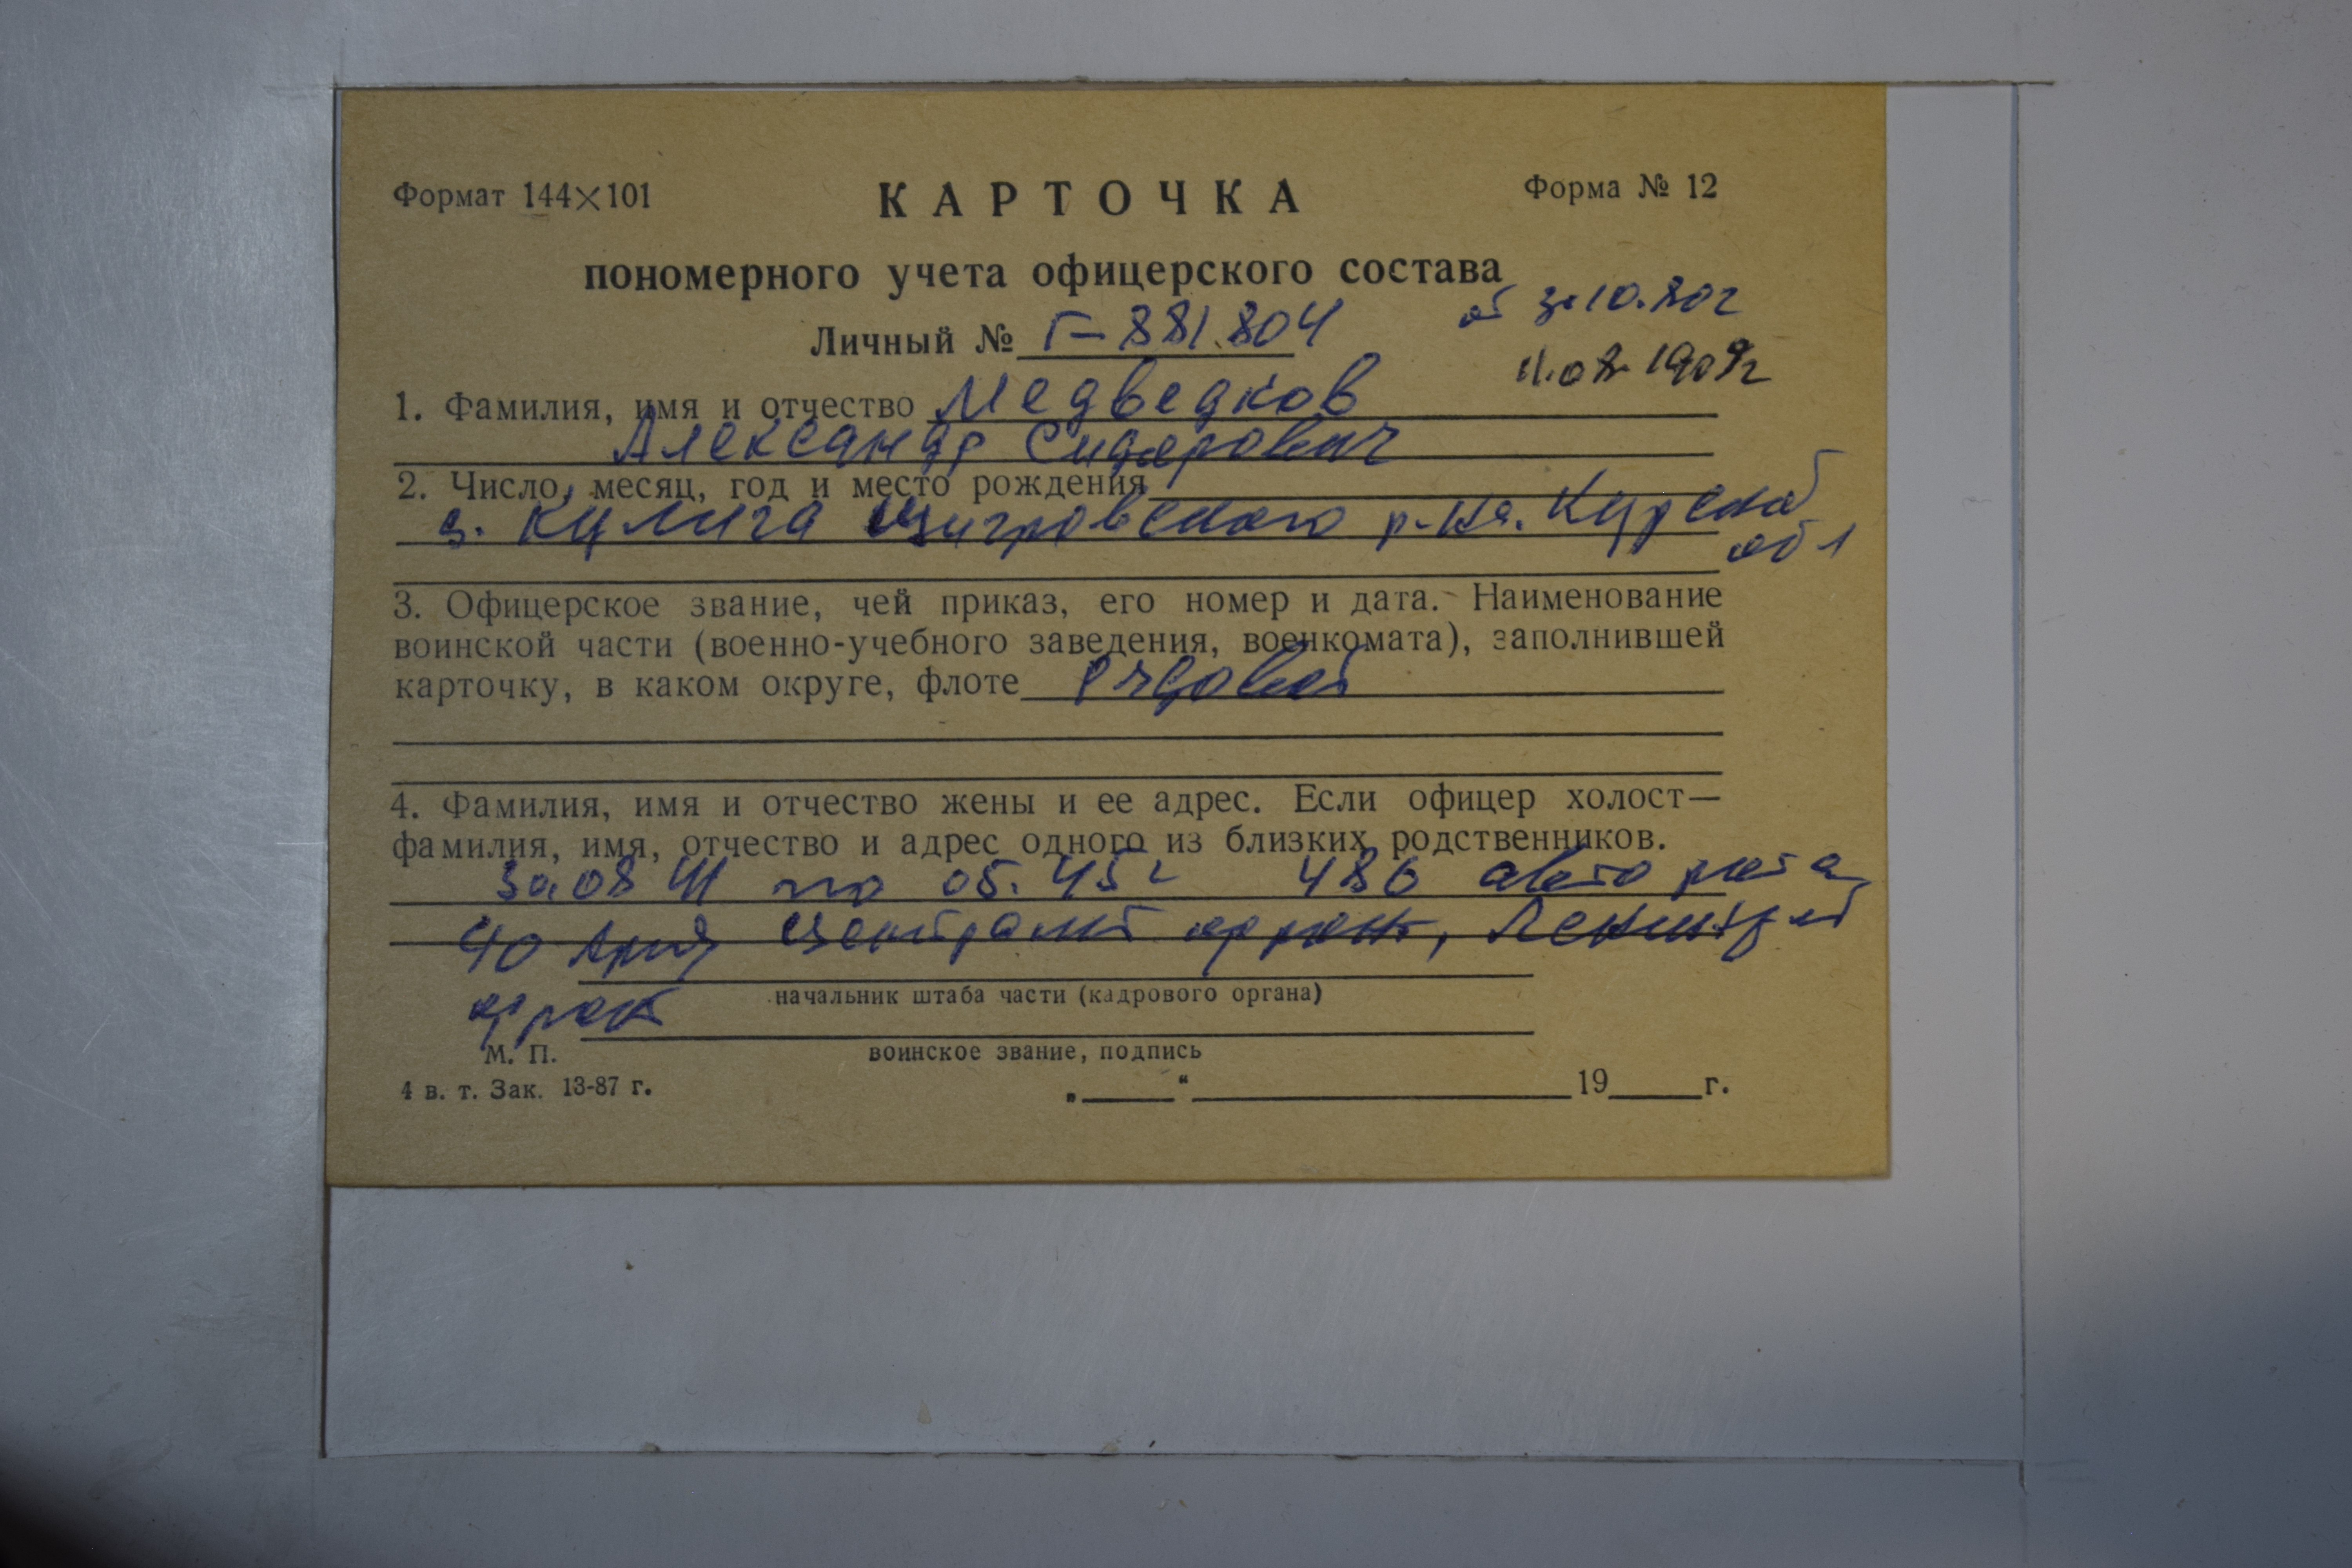 Формат 144×101
КАРТОЧКА
Форма № 12
пономерного учета офицерского состава
Личный № Г-881.804
от 30.10.80г
11.08.1909г
1. Фамилия, имя и отчество Медведков
Александр Сидорович
2. Число, месяц, год и место рождения
с. Кулига Щигровского р-на. Курской
обл
3. Офицерское звание, чей приказ, его номер и дата. Наименование
воинской части (военно-учебного заведения, военкомата), заполнившей
карточку, в каком округе, флоте рядовой
4. Фамилия, имя и отчество жены и ее адрес. Если офицер холост—
фамилия, имя, отчество и адрес одного из близких родственников.
по 05.45г 486 авто рота
40 Центральный фронт,
начальник штаба части (кадрового органа)
фронт
воинское звание, подпись
М. П.
4 в. т. Зак. 13-87 г.
„ “ 19 г.